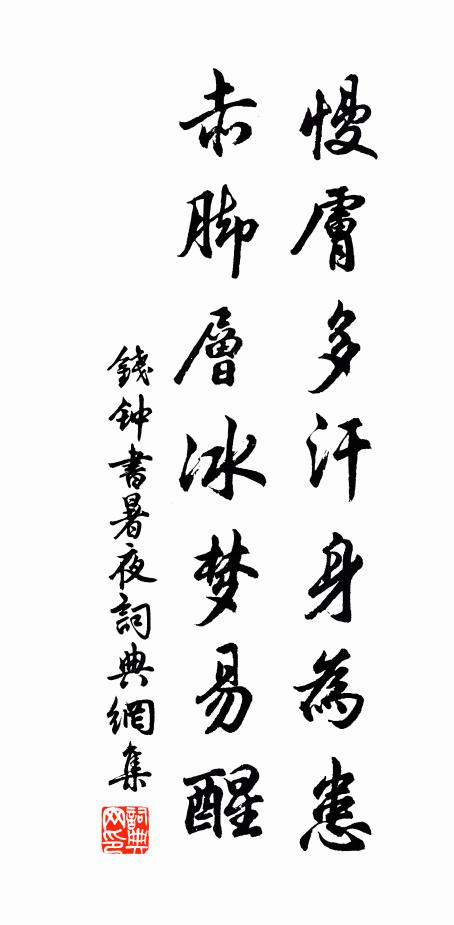 慢膚多汗身為患
赤脚層冰梦易醒
錢钟書暑夜詞典網集
詞典网印